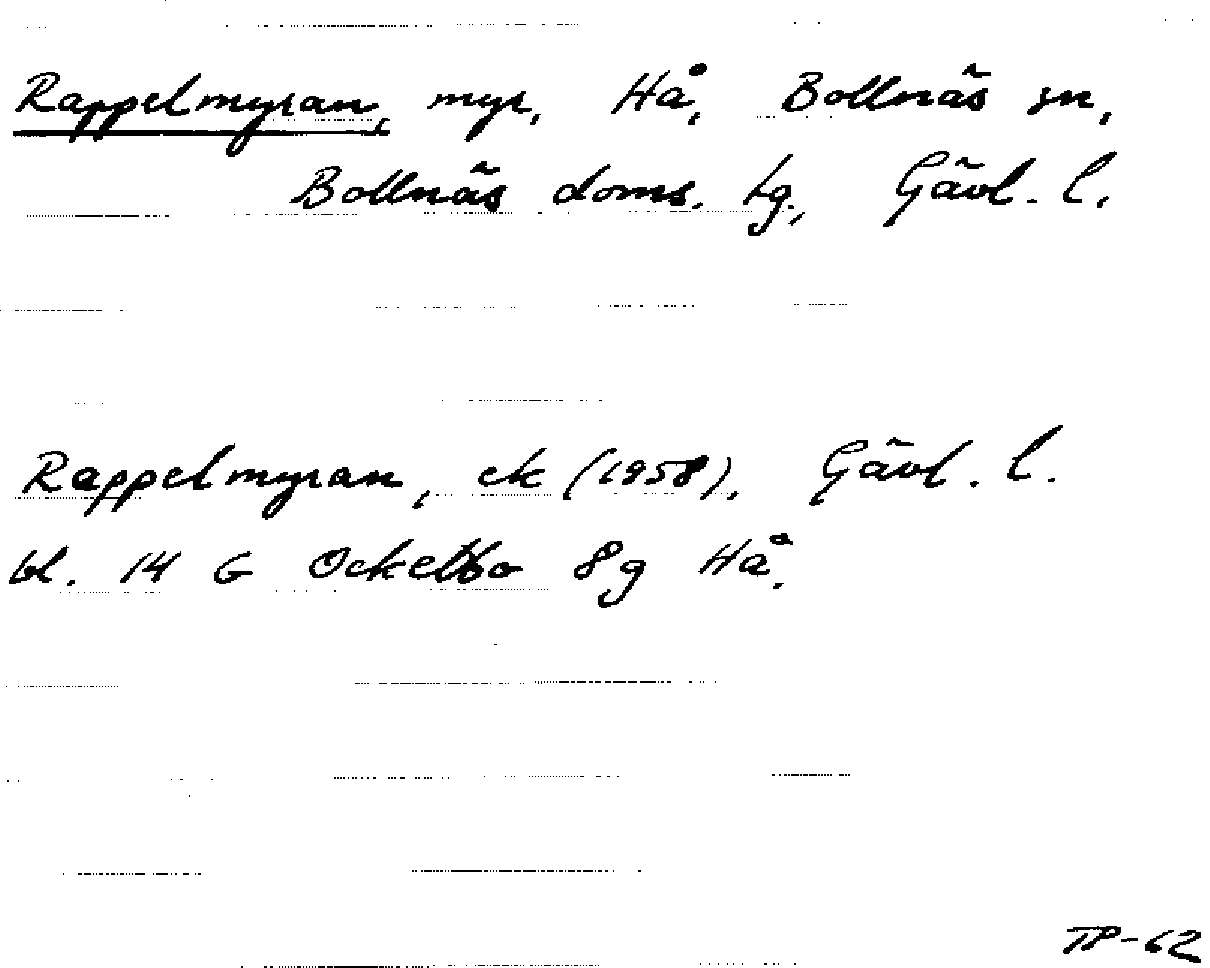 Rappelmyran, myr, Hå, Bollnäs sn,
Bollnäs doms. tg., Gävl. l.
Rappelmyran, ek (1958), Gävl. l.
bl. 14 G Ockelbo 8g Hå.
TP-62